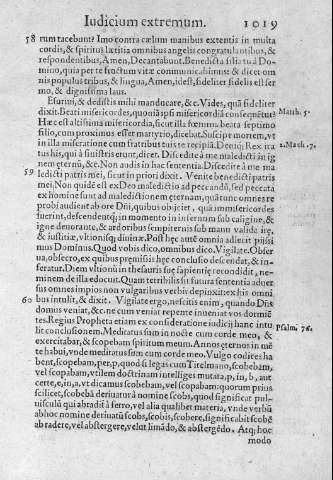 Iudicium extremum. 1019
58 rum tacebunt? Imo contra cælum manibus extentis in multa
cordis, & spiritus lætitia omnibus angelis congratulantibus, &
respondentibus, Amen, Decantabunt. Benedicta filia tua à Domino,
quia per te fructum vitæ communicabimus & dicet omnis
populus tribus, & lingua, Amen, idest, fideliter fidelis est sermo,
& dignissima laus.
Esuriui, & dedistis mihi manducare, & c. Vides, quā fideliter
dixit. Beati misericordes, quoniā ipsi misericordiā consequētur? Matth. 5.
Hæc est altissima misericordia, sicut illa fœmina beata septimo
filio, cum proximus esset martyrio, dicebat. Suscipe mortem, vt
in illa miseratione cum fratribus tuis te recipiā. Deniq; Rex ira 2. Mach. 7.
tus his, qui à sinistris erunt, dicet. Discedite à me maledicti in ignem
ętern̄, &c. Non audis in hac sententia. Discedite à me ma
59 ledicti patris mei, sicut in priori dixit. Venite benedicti patris
mei. Non quidē est ex Deo maledictio ad peccandū, sed peccata
ex homine sunt ad maledictionem æternam, quā tunc omnes reprobi
audient ab ore Dñi, quibus obijciet, quā immisericordes
fuerint, descendentq; in momento in infernum sub caligine, &
igne deuorante, & ardoribus sempiternis sub manu valida iræ,
& iustitiæ, vltionisq; diuinæ. Post hęc autē omnia adierit pijssimus
Dominus. Quod vobis dico, omnibus dico. Vigilate. Obser
ua, obsecro, ex quibus præmissis hęc conclusio descendat, & inferatur.
Diem vltionū in thesauris suę sapientię recondidit, neminem
de illa edocuit. Quam terribilis sit futura sententia aduersus
omnes impios non vulgaribus verbis depinxit: ex his omni
60 bus intulit, & dixit. Vigilate ergo, nescitis enim, quando Dñs
domus veniat, &c. ne cum veniat repente inueniat vos dormiē
tes. Regius Propheta etiam ex consideratione iudicij hanc intu Psalm. 76.
lit conclusionem. Meditatus sum in nocte cum corde meo, &
exercitabar, & scopebam spiritum meum. Annos æternos in mē
te habui, vnde meditatus sum cum corde meo. Vulgo codices ha
bent, scopebam, per, p. quod si legas cum Titelmano, scobebam,
vel scopabam, vtilem doctrinam intelliges mutata, p, in, b, aut
certe, e, in, a. vt dicamus scobebam, vel scopabam: quorum prius
scilicet, scobebā deriuatur à nomine scobs, quod significat puluisculū
qui abradit à ferro, vel alia qualibet materia, vnde verbū
ab hoc nomine deriuatū scobs, scobis, scobere, significabit scobē
abradere, vel abstergere, velut limādo, & abstergēdo. Atq; hoc
modo